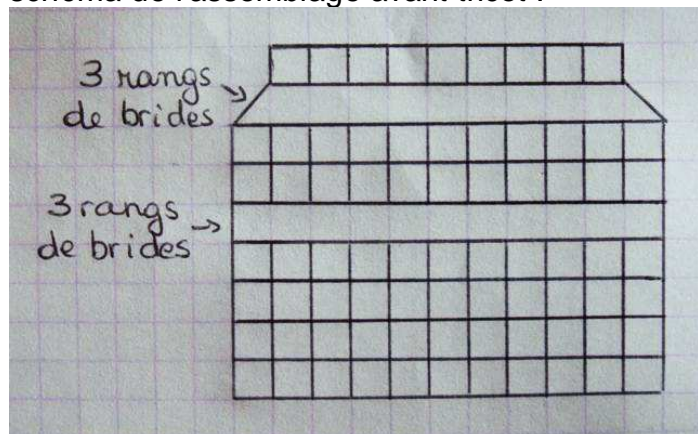 3 rangs
de brides
3 rangs
de brides